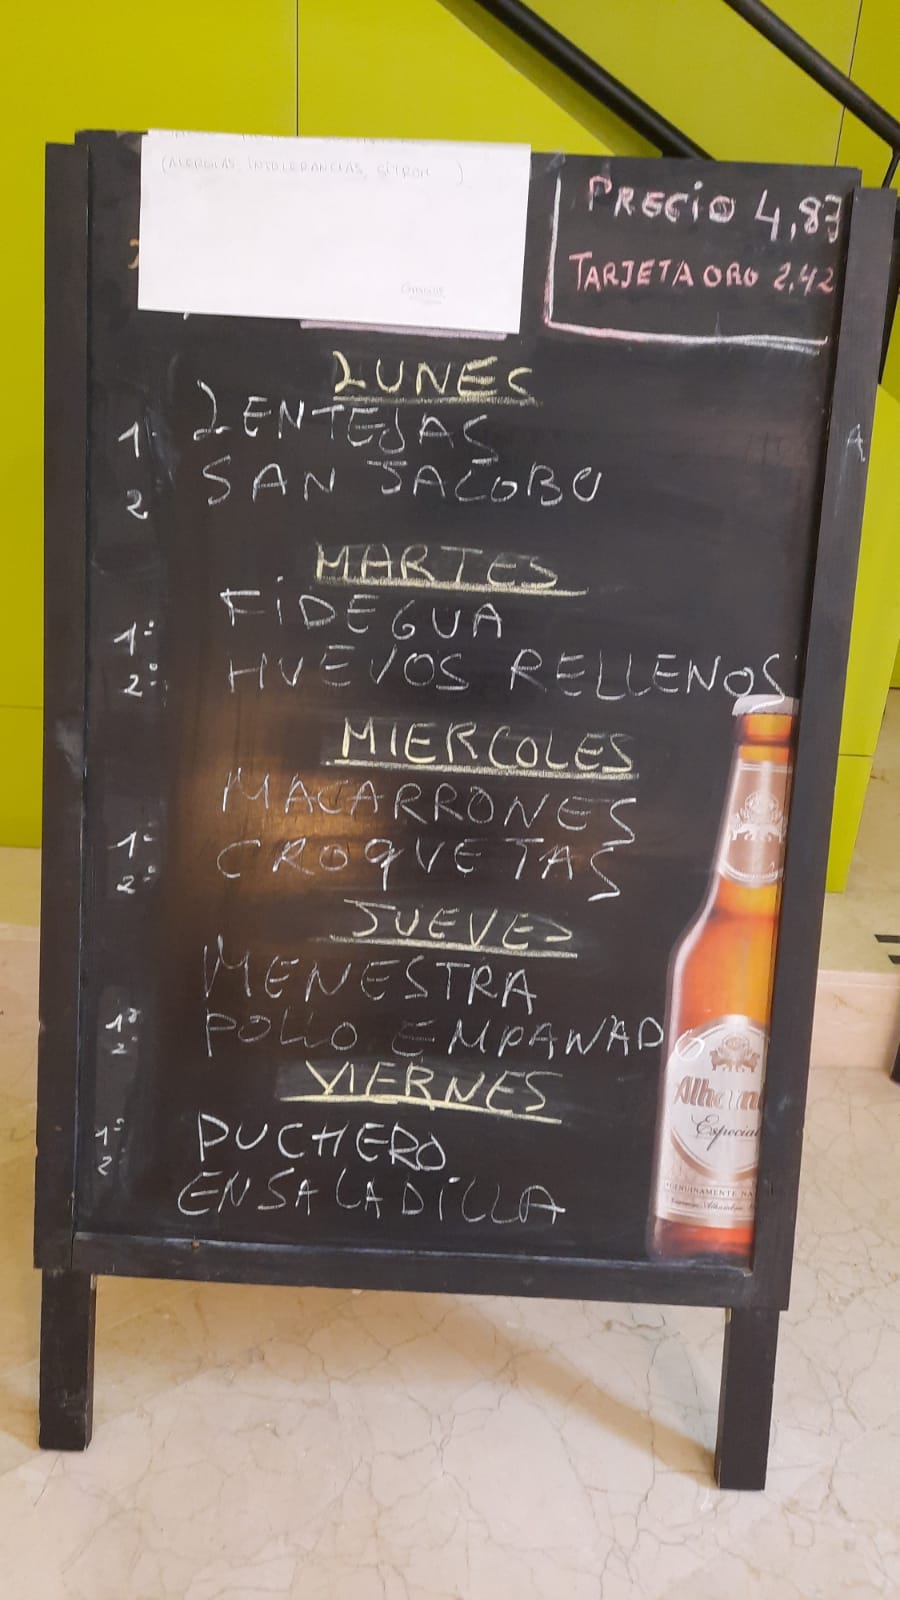 (ALERGIAS, INTOLERANCIAS, SINTROM )
Gracias
PRECIO 4,87
TARJETA ORO 2,42
LUNES
1º LENTEJAS
2 SAN JACOBO
MARTES
1º FIDEGUA
2º HUEVOS RELLENOS
MIERCOLES
1º MACARRONES
2º CROQUETAS
JUEVES
1º MENESTRA
2º POLLO EMPANADO
VIERNES
1º PUCHERO
2º ENSALADILLA
Alham
Especial
GENUINAMENTE NA
A